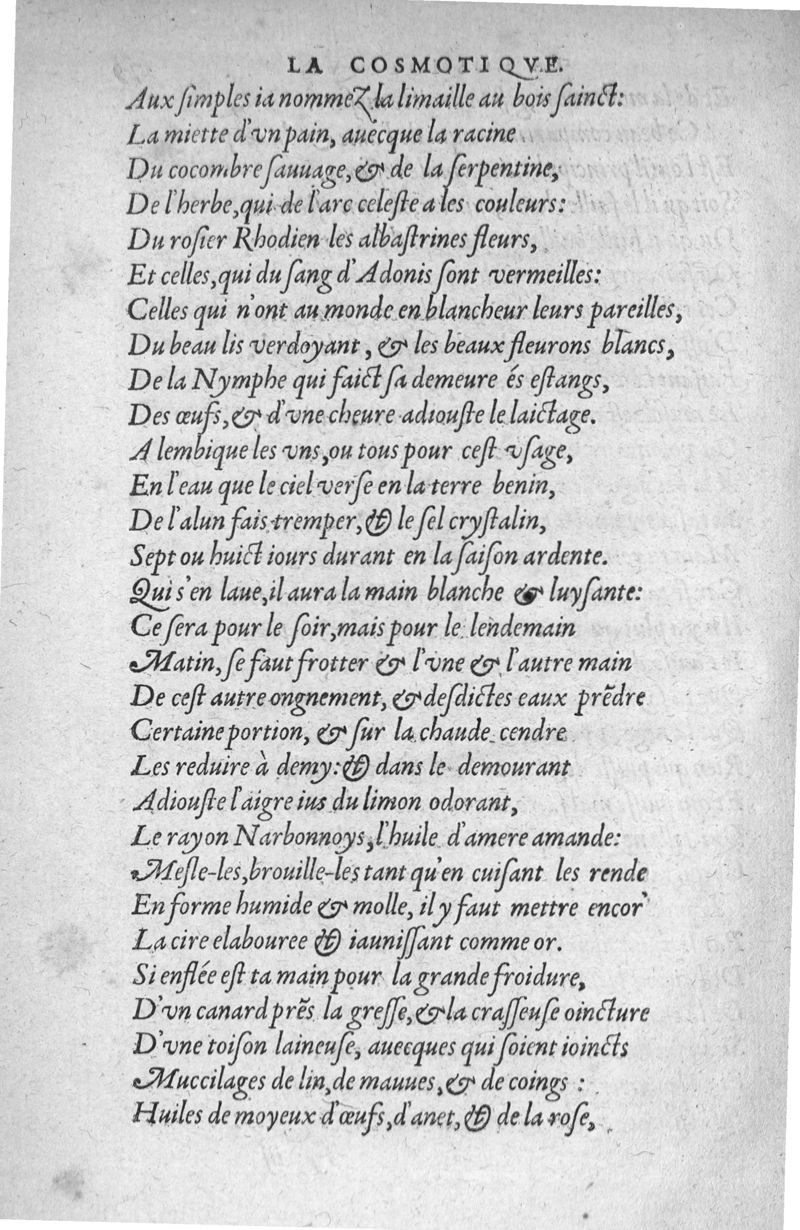 LA COSMOTIQVE.
Aux ſimples ia nommeZ la limaille au bois ſainct:
La miette d'vn pain, auecque la racine
Du cocombre ſauuage, & de la ſerpentine,
De l'herbe, qui de l'arc celeſte a les couleurs:
Du roſier Rhodien les albaſtrines fleurs,
Et celles, qui du ſang d'Adonis ſont vermeilles:
Celles qui n'ont au monde en blancheur leurs pareilles,
Du beau lis verdoyant, & les beaux fleurons blancs,
De la Nymphe qui faict ſa demeure és eſtangs,
Des œufs, & d'vne cheure adiouſte le laictage.
Alembique les vns, ou tous pour ceſt vſage,
En l'eau que le ciel verſe en la terre benin,
De l'alun fais tremper, & le ſel cryſtalin,
Sept ou huict iours durant en la ſaiſon ardente.
Qui s'en laue, il aura la main blanche & luyſante:
Ce ſera pour le ſoir, mais pour le lendemain
Matin, ſe faut frotter & l'vne & l'autre main
De ceſt autre ongnement, & deſdictes eaux prẽdre
Certaine portion, & ſur la chaude cendre
Les reduire à demy: & dans le demourant
Adiouſte l'aigre ius du limon odorant,
Le rayon Narbonnoys, l'huile d'amere amande:
Meſle-les, brouille-les tant qu'en cuiſant les rende
En forme humide & molle, il y faut mettre encor'
La cire elabouree & iauniſſant comme or.
Si enflée eſt ta main pour la grande froidure,
D'vn canard prẽs la greſſe, & la craſſeuſe oincture
D'vne toiſon laineuſe, auecques qui ſoient ioincts
Muccilages de lin, de mauues, & de coings :
Huiles de moyeux d'œufs, d'anet, & de la roſe,